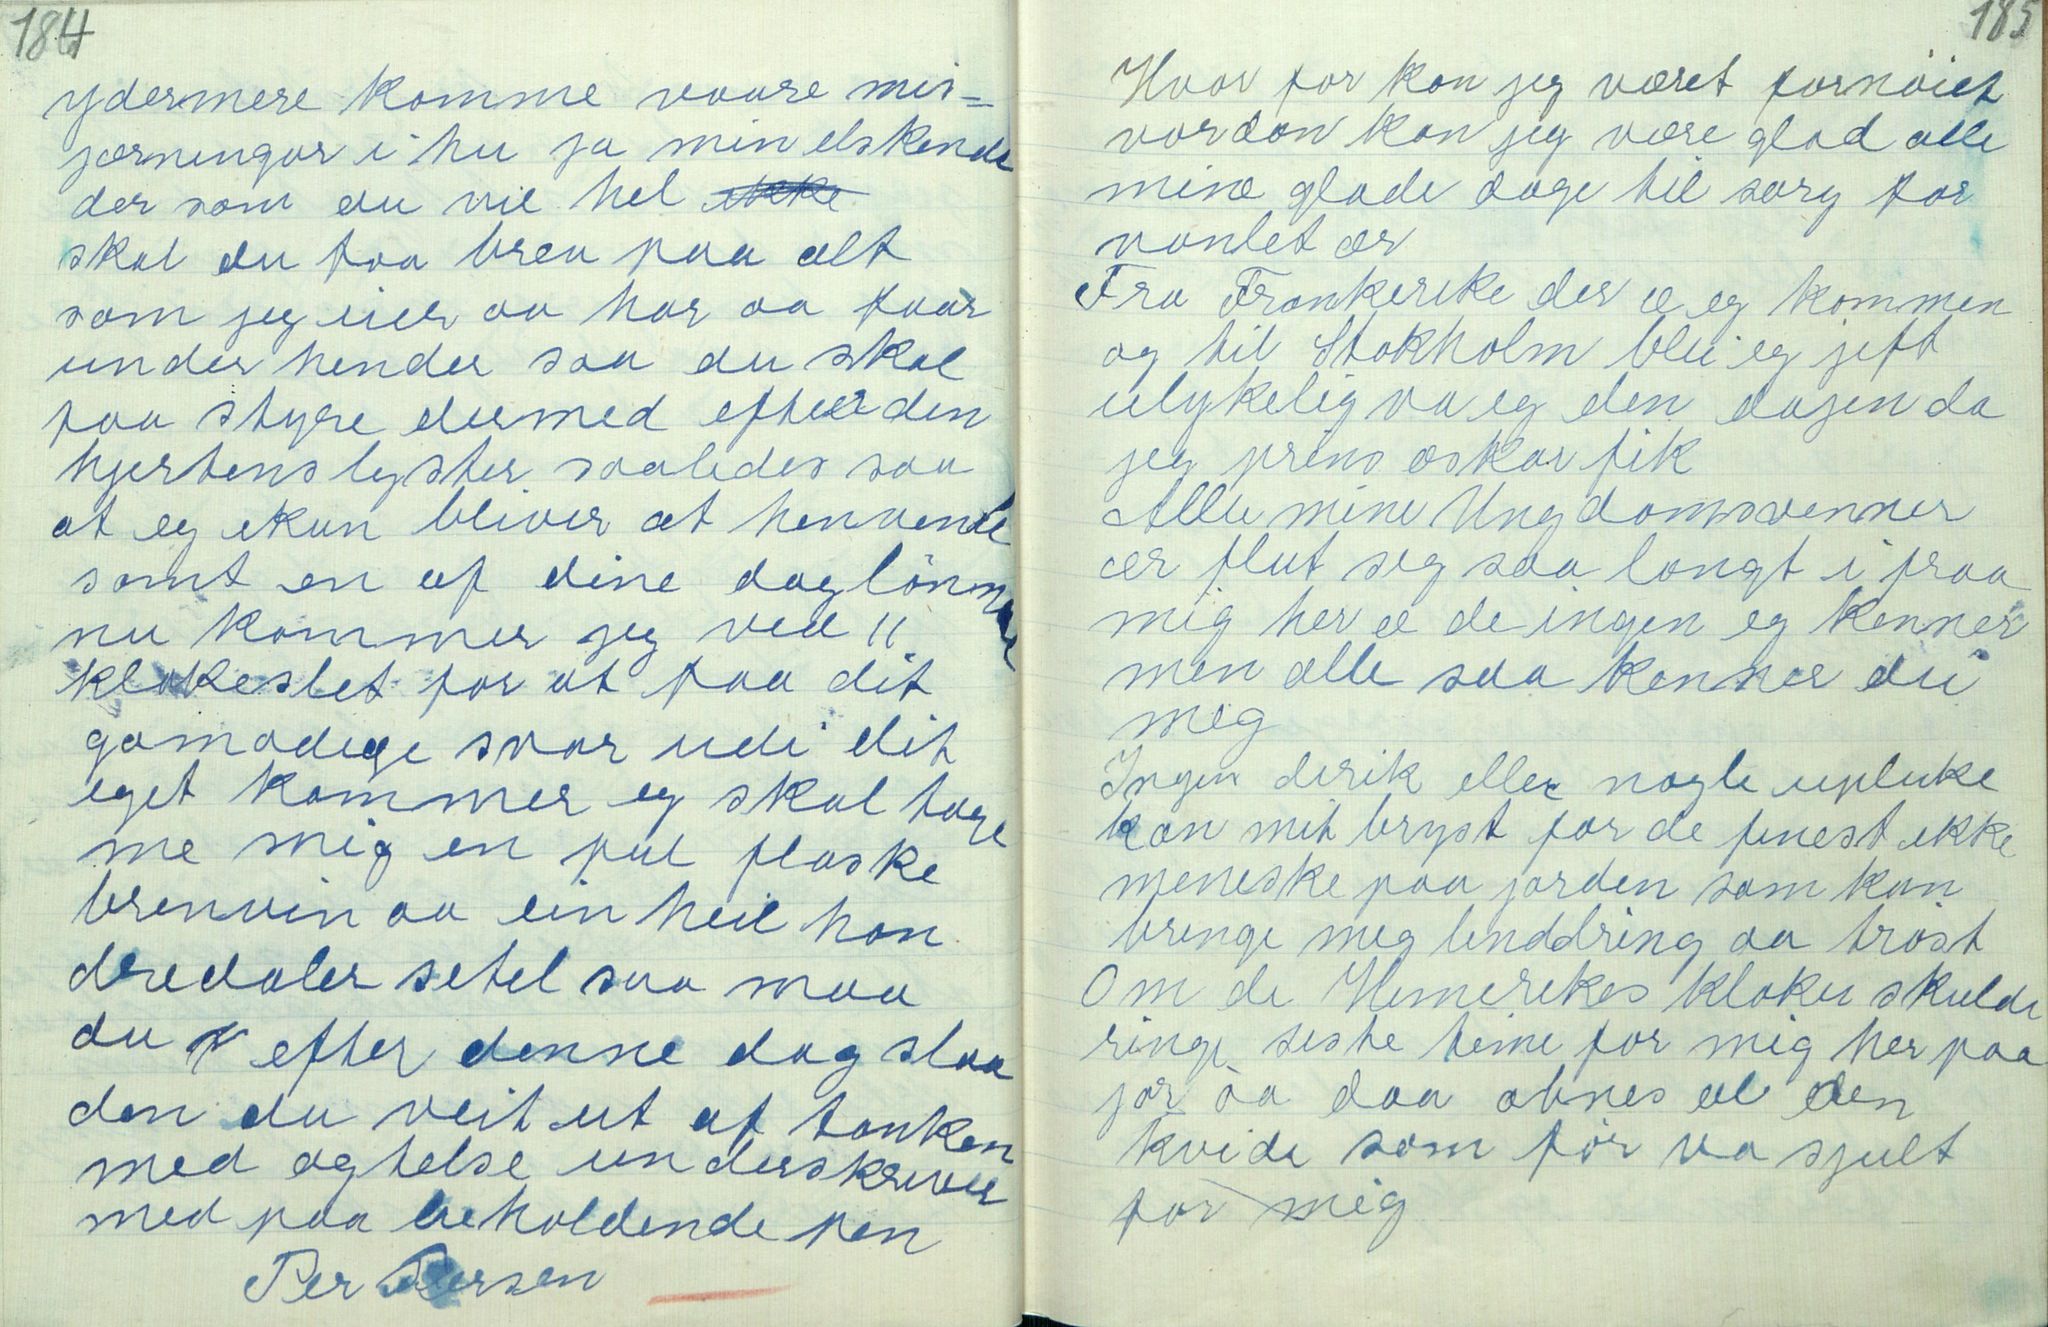 184
ydermere komme vaare mis=
jærninger i hu ja min elskende
der som du vil hel ikke
skal du faa brev paa alt
som jeg eier aa har aa faar
under hender saa du skal
faa styre dermed efter den
hjertens lyster saaledes saa
at eg ekun bliver at henvende
somt en af dine daglönnnar
nu kommer jeg ved 11
klokeslet for at faa dit
gomodige svar udi dit
eget kommer eg skal tage
me mig en pul flaske
brenvin aa ein heil hon
dredaler setel saa maa
du efter denne dag slaa
den du veit ut af tanken
med agtelse underskriver
med paa beholdende pen
Per Persen
185
Hvor for kan jeg været fornöiet
vordan kan jeg være glad alle
mine glade dage til sorg for
vanlet er
Fra Frankerike der æ eg kommen
og til Stokholm blei eg jeft
ulykelig va eg den dagen da
jeg prins oskar fik
Alle mine Ungdomsvenner
er flut seg saa langt i fraa
mig her æ de ingen eg kenner
men alle saa kenner dei
meg
Ingen dirik eller nogle upluke
kan mit bryst for de finest ikke
meneske paa jorden som kan
bringe meg lenddring aa tröst
Om de Himerikes kloker skulde
ringe siste time for mig her paa
jor aa daa abnes al den
kvide som för va sjult
for mig